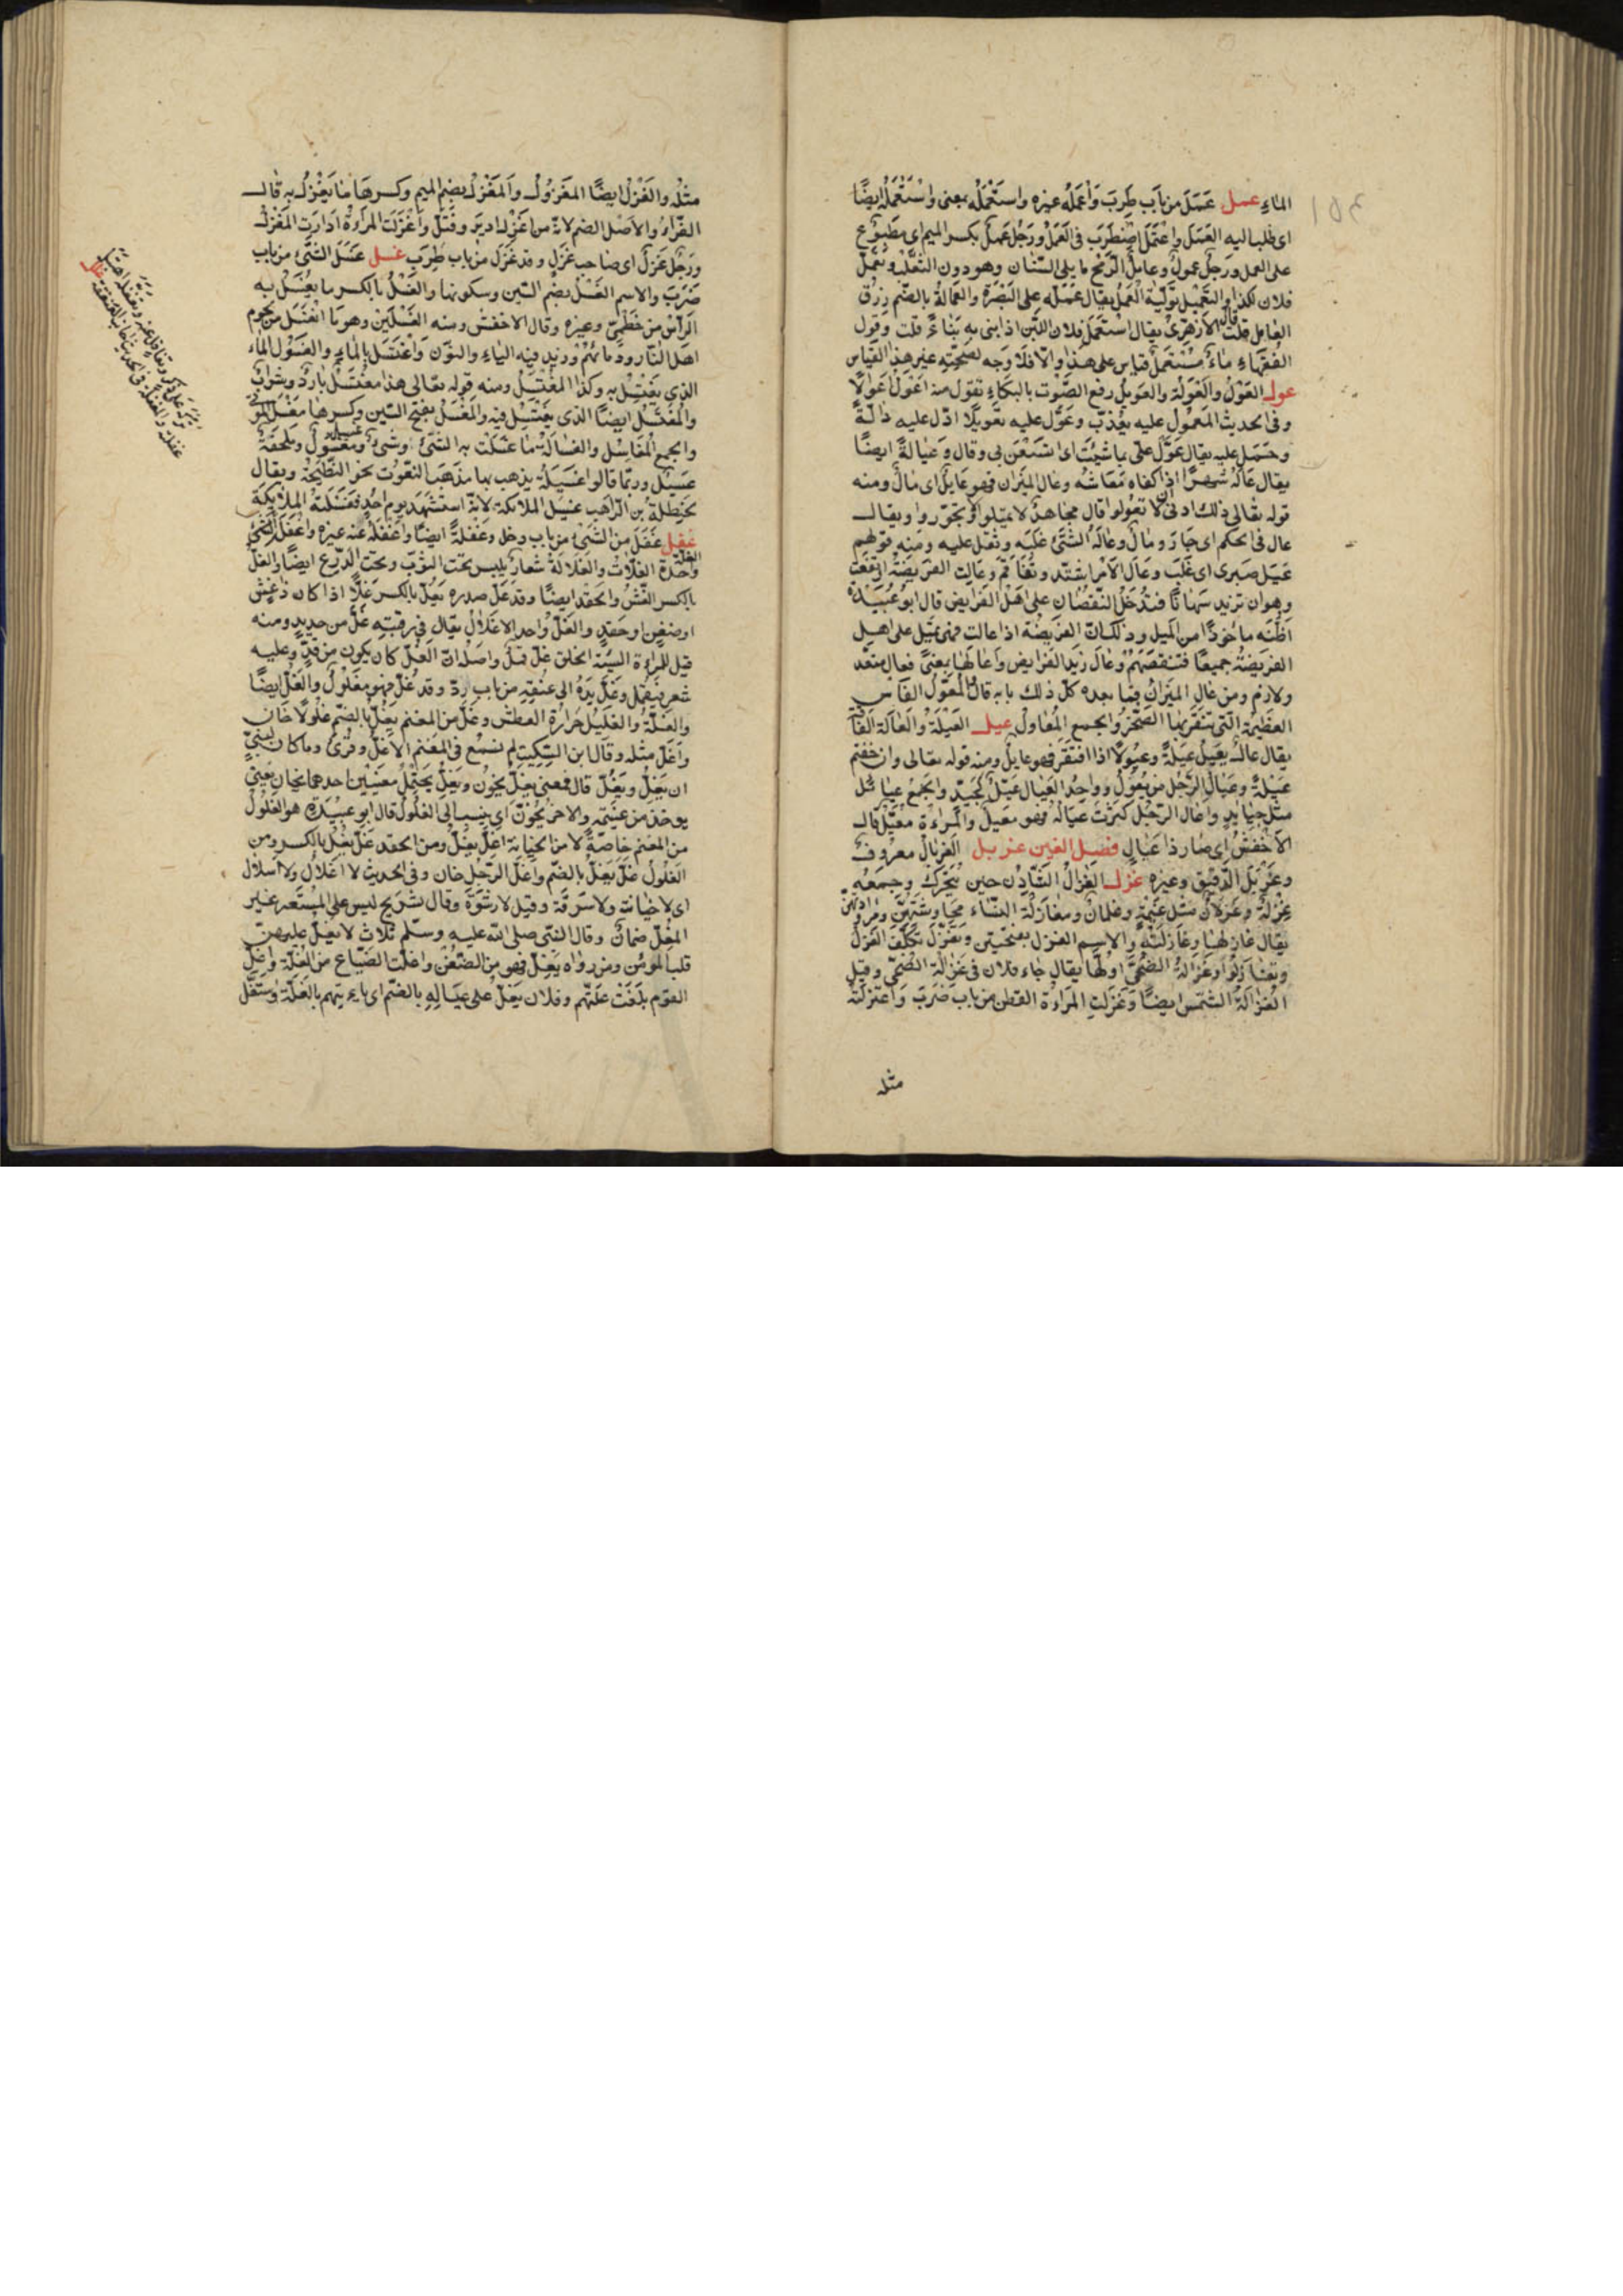 الماءِ عمل عَمَلَ من باب طَرِبَ وَأعْمَلَهُ غيره واستَعْمَلَهُ بمعنى وَاسْتَعْمَلَهُ ايضًا
اى طلب اليه العَمَلَ واعْتَمَلَ اضْطَرَبَ فى العَمَلْ ورَجُل عَمِلٌ بكسر الميم اى مَطبُوع
على العمل ورَجلٌ عمولٌ وعامِلُ الرّمْحِ ما يلى السّنان وهو دون الثعلب وتَعمّل
فلان لكذا والتَعْمِيْل تَوْلِيَة العَمَلُ يقال عَمّلَه على البَصْرَة والعُمالَةُ بالضّم رِزْق
العامل قلت قال الأزهَرِيّ يقال اسْتَعْمَل فلان اللّبِن اذا بنى به بِنَاءً قلت وقول
الفُقَهاءِ مَاءٌ مُسْتَعْمَلٌ قياس على هذا والّا فلَا وَجه لصحّته غير هذا القياس
عول العَوْلُ والعَوْلَة والعَويلُ رفع الصّوت بالبكاءِ تقول منه اعْوَلَ اعْوَالًا
وفى الحديث المُعْوَلُ عليه يُعَذّبُ وعَوّل عليه تَعْويلًا ادّل عليه دالّةً
وحَمَل عليه يقال عَوِّلْ علىّ بما شِئْتَ اى اسْتَعْنَ بى وقال وَعِيالةً ايضًا
يقال عَالَهُ شَهْرًا اذا كفاه مَعَاشَهُ وعَال الميزان فهو عَايِلٌ اى مَالَ ومنه
قوله تعالى ذلك ادنى أن لا تعُولوا قال مجاهدٌ لا تَمِيلوا ولا تجُوروا ويقالـ
عال فى الحكم اى جَارَ ومَالَ وعَالَهُ الشّئُ غلبَه وثَقُل عليه ومنه قولهم
عِيلَ صَبرى اى غُلِبَ وعَالَ الأمْر اشتد وتفَاقَمَ وعَالت الفريضَةُ ارتفعت
وهو ان تزيد سِهَامًا فيَدْخُل النّقصَان على اهْل الفرايض قال ابو عُبَيْدَة
اظُنّه مأخوذًا من المَيل وذلك انّ الفريضَة اذا عالت فهى تَميل على اهل
الفريضَةِ جميعًا فتنقصُهُمْ وعَالَ زيد الفرايض واعَالَها بمعنًى فعال متعد
ولازم ومن عَال الميزان فما بعده كلّ ذلك بابه قال والمعْوَلُ الفَاس
العظيْمَة الّتى يُنقَر بها الصّخْرُ والجمع المعَاوِل عيل العَيْلَة والعَالَة الفاقة
يقال عَالَ يَعِيلُ عَيلَةً وعُيُولًا اذا افتقر فهو عايل ومنه قوله تعالى وان خفتم
عَيْلَةً وعِيَال الرّجُل من يَعُولُ وواحِدُ العِيَال عَيّلٌ كجَيّد والجَمعُ عَيَايل
مثل جيَايد واعال الرّجُل كَثُرَت عِيَالُهُ فهو معِيلٌ والمَرأة معِيْلَة قالـ
الاخفش اى صَار ذا عِيَال فصل الغين غربل الغِربَال معروف
وغَرْبَلَ الدّقيق وغيره غزل الغَزَالُ الشّادِن حين يَتحرّك وجمعُه
غِزلَةٌ وغِزلانٌ مثل غِلْمَةٍ وغِلمانٍ ومغَازَلَةُ النّساءِ محادثتهنّ ومُراودتهنّ
يقال غازلهَا وغازَلَتْه والاسم الغزل بفتحتين وتغَزّلَ تكلّف الغزل
وتَغازَلُوا وغَزالَةُ الضُّحَى اوّلُهَا يقال جاء فلان فى غَزالَة الضُّحَى وقيل
الغَزالَةُ الشّمس ايضًا وغَزَلَتِ المَراءة القطن من باب ضَرَبَ وَاغتَزَلَتْهُ
مثله
مثْلهُ والغَزْلُ ايضًا المَغزُولُ والمَغْزَلُ بضم الميم وكسرها ما يُغْزَلُ به قالـ
الفرّاءُ والأصْل الضم لانّهُ من اغْزِلَ اى اديرَ وفُتِلَ وَاغْزَلَت المرءَةُ ادَارَتِ المغزل
ورَجُل غَزِلٌ اى صَاحب غَزَلٍ وقد غَزِلَ من باب طَرِبَ غسل غَسَلَ الشّئ من باب
ضَرَبَ والاسم الغسْل بضم السّين وسكونها والغِسْلُ بالكسر ما يُغْسَلُ به
الرّأس من خَطْمِىّ وغيره وقال الاخفش ومنه الغِسْلِين وهو ما انْغَسَلَ من لحوم
اهل النّار ودمائهم وزيد فيه الياء والنون وَاغتسَل بالماءِ والغَسُول الماء
الذى يغتسل به وكذا المُغْتَسَلُ ومنه قوله تعالى هذا مغْتَسَلٌ باردٌ وشرابٌ
والمُغتَسَلُ ايضًا الذى يغتسِل فيه والمَغسَل بفتح السّين وكسرها مَغسَل الموتى
والجمع المَغَاسِل والغُسَالَةُ مَا غسَلت به الشئ وشىء غسيل ومغسُول وملحَفَةٌ
غَسِيْلٌ وربّما قالوا غَسِيلَةٌ يذهب بها مَذهَبَ النّعُوت نحو النّطيحَة ويقال
لحنظَلة بن الرّاهب غسيل الملائكة لانّه استُشهِدَ يوم احُدٍ فغَسَلته الملائكَة
غفل غَفَلَ عن الشّئ من باب دخل وغَفْلَةً ايضًا وَاغفَلَهُ عنه غيره واغفَلَ الشّئ
الغلة وَاحدَة الغلّات والغِلَالَة شِعارٌ يلبس تحت الثوب وتحت الدّرْع ايضًا والغِلّ
بالكسر الغِشّ والحِقد ايضًا وقد غَلّ صدره يَغِلّ بالكسر غِلًّا اذا كان ذا غِشّ
او ضغنٍ او حِقدٍ والغُلّ وَاحد الاغلال يقال فى رقبتِه غُلّ من حديد ومنه
قيل للمرأة السّيئة الخلق غُلّ قَمِلٌ واصلُه انّ الغُلّ كان يكون من قِدٍّ وعليه
شعر فيَقمَل وغَلّ يَدَهُ الى عنُقِه من باب ردّ وقد غُلّ فهو مَغلُولٌ والغُلّ ايضًا
والغُلّةُ والغَليل حَرارَةُ العطش وغَلّ من المغنم يَغُلّ بالضّم غلُولًا خَان
وَاغَلّ مثله وقال ابن السّكيت لم نسمَع فى المغنَم الّا غَلّ وقرئ وما كان لنبىّ
ان يَغُلّ ويُغَلّ قال فمعنى يَغُلّ يخُون ويُغَلّ يحتمل معنَيَيْن احدهما يُخان يَعنِى
يوخذ من غنيمته والاخر يُخوّن اى ينسب الى الغلول قال ابو عبيدة هو الغلول
من المغنم خاصّةً لا من الخيانة اغَلّ يُغِلّ ومن الحقد غَلّ يَغِلّ بالكسر ومن
الغُلول غَلّ يَغُلّ بالضّم وَاغَلّ الرّجُل خان وفى الحديث لا اغلال ولا اسلال
اى لا خيانة ولا سَرقَة وقيل لا رشوَة وقال شرَيح ليس على المستعير غير
المغِلّ ضمانٌ وقال النبى صلى اللّه عليه وسلّم ثلاث لا يغلّ عليهنّ
قلب المُومِن ومن رواه يَغِلّ فهو من الضِّغن واغلّت الضّياع من الغَلّة واغلّ
القوم بلغت غَلّتهم وفلان يُغِلّ على عياله بالضّم اى يأتيهم بالغَلّة واستَغَلّ